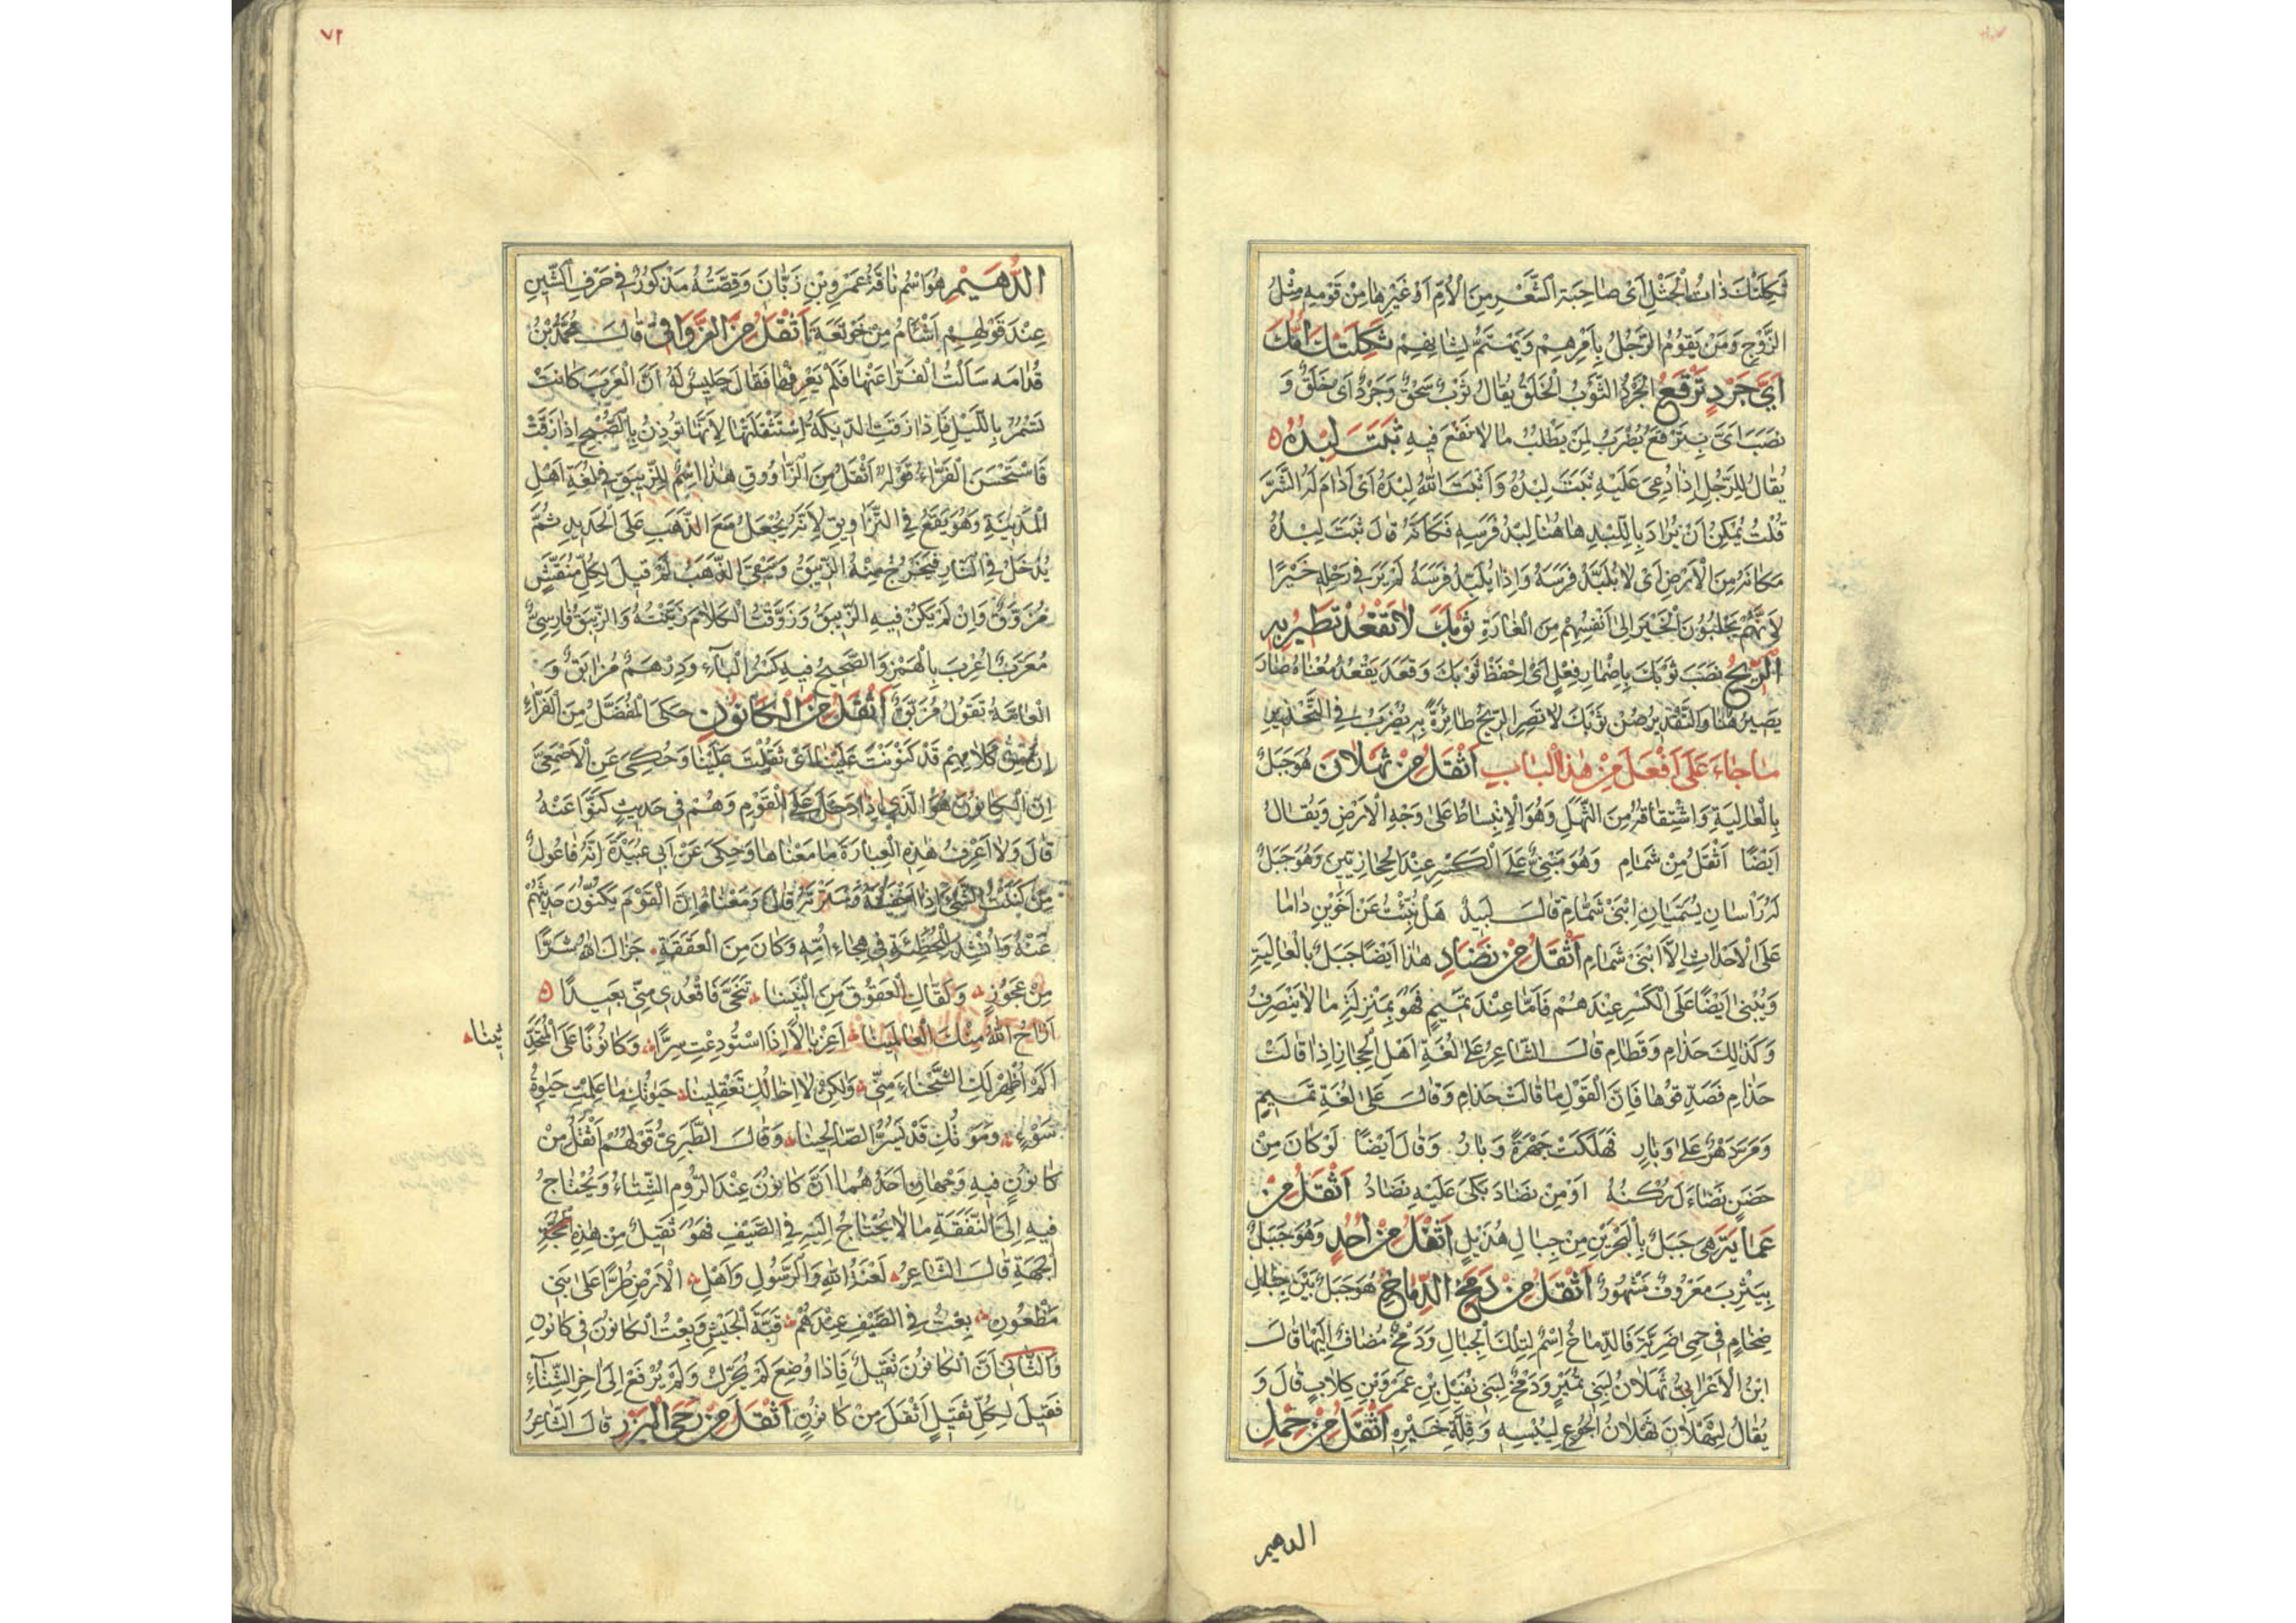 ثَكِلَتْكَ ذَاتُ الْجَثْلِ اَىْ صَاحِبَة الشَّعْرِ مِنَ الْاُمِّ اَوْ غَيْرِهَا مِنْ قَوْمِهِ مِثْلُ
الزَّوْجِ وَمَنْ يَقُومُ الرَّجُلُ بِاَمْرِهِمْ وَيَهْتَمُّ لِشَانِهِمْ ثَكِلَتْكَ اُمُّكَ
اَيَّ جَرْدٍ تَرْقَعُ الْجَرْدُ الثَّوْبُ الْخَلَقُ يُقَالُ ثَوْبٌ سَحْقٌ وَجَرْدٌ اَىْ خَلَقٌ وَ
نَصَبَ اَىَّ بِتَرْقَعُ يُضْرَبُ لِمَنْ يَطْلُبُ مَا لَا نَفْعَ فِيهِ ثَبَتَ لِبْدُهُ
يُقَالُ لِلرَّجُلِ اِذَا دُعِىَ عَلَيْهِ ثَبَتَ لِبْدُهُ وَاَثْبَتَ اللّٰهُ لِبْدَهُ اَىْ اَدَامَ لَهُ الشَّرَّ
قُلْتُ يُمْكِنُ اَنْ يُرَادَ بِاللِّبْدِ هَاهُنَا لِبْدُ فَرَسِهِ فَكَاَنَّهُ قَالَ ثَبَتَ لِبْدُهُ
مَكَانَهُ مِنَ الْاَرْضِ اَىْ لَا يُلْبَدُ فَرَسَهُ وَاِذَا لَمْ يُلْبَدْ فَرَسَهُ لَمْ يَرَ فِى رَحْلِهِ خَيْرًا
لِاَنَّهُمْ يَجْلِبُونَ الْخَيْرَ اِلَى اَنْفُسِهِمْ مِنَ الْغَارَةِ ثَوْبَكَ لَا تَقْعُدْ تَطِيرُ بِهِ
الرِّيحُ نَصَبَ ثَوْبَكَ بِاِضْمَارِ فِعْلٍ اَىْ اِحْفَظْ ثَوْبَكَ وَقَعَدَ يَقْعُدُ مَعْنَاهُ صَارَ
يَصِيرُ هُنَا وَالتَّقْدِيرُ صُنْ ثَوْبَكَ لَا تَصِرِ الرِّيحُ طَائِرَةً بِهِ يُضْرَبُ فِى التَّحْذِيرِ
مَا جَاءَ عَلَى اَفْعَلَ مِنْ هٰذَا الْبَابِ اَثْقَلُ مِنْ ثَهْلَانَ هُوَ جَبَلٌ
بِالْعَالِيَةِ وَاشْتِقَاقُهُ مِنَ الثَّهَلِ وَهُوَ الْاِنْبِسَاطُ عَلَى وَجْهِ الْاَرْضِ وَيُقَالُ
اَيْضًا اَثْقَلُ مِنْ شَمَامِ وَهُوَ مَبْنِىٌّ عَلَى الْكَسْرِ عِنْدَ الْحِجَازِيِّينَ وَهُوَ جَبَلٌ
لَهُ رَاْسَانِ يُسَمَّيَانِ اِبْنَىْ شَمَامِ قَالَ لَبِيدٌ هَلْ نُبِّئْتَ عَنْ اَخَوَيْنِ دَامَا
عَلَى الْاَحْدَاثِ اِلَّا ابْنَىْ شَمَامِ اَثْقَلُ مِنْ نَضَادِ هٰذَا اَيْضًا جَبَلٌ بِالْعَالِيَةِ
وَيُبْنَى اَيْضًا عَلَى الْكَسْرِ عِنْدَهُمْ فَاَمَّا عِنْدَ تَمِيمٍ فَهُوَ بِمَنْزِلَةِ مَا لَا يَنْصَرِفُ
وَكَذٰلِكَ حَذَامِ وَقَطَامِ قَالَ الشَّاعِرُ عَلَى لُغَةِ اَهْلِ الْحِجَازِ اِذَا قَالَتْ
حَذَامِ فَصَدِّقُوهَا فَاِنَّ الْقَوْلَ مَا قَالَتْ حَذَامِ وَقَالَ عَلَى لُغَةِ تَمِيمٍ
وَمَرَّ دَهْرٌ عَلَى وَبَارِ فَهَلَكَتْ جَهْرَةً وَبَارُ وَقَالَ اَيْضًا لَوْ كَانَ مِنْ
حَضَنٍ تَضَاءَلَ رُكْنُهُ اَوْ مِنْ نَضَادَ بَكَى عَلَيْهِ نَضَادُ اَثْقَلُ مِنْ
عَمَايَةَ هِىَ جَبَلٌ بِالْبَحْرَيْنِ مِنْ جِبَالِ هُذَيْلٍ اَثْقَلُ مِنْ اُحُدٍ وَهُوَ جَبَلٌ
بِيَثْرِبَ مَعْرُوفٌ مَشْهُورٌ اَثْقَلُ مِنْ دَمْخِ الدِّمَاخِ هُوَ جَبَلٌ بَيْنَ جِبَالٍ
ضِخَامٍ فِى حِمَى ضَرِيَّةَ فَالدِّمَاخُ اِسْمٌ لِتِلْكَ الْجِبَالِ وَدَمْخٌ مُضَافٌ اِلَيْهَا قَالَ
ابْنُ الْاَعْرَابِىِّ ثَهْلَانُ لِبَنِى نُمَيْرٍ وَدَمْخٌ لِبَنِى نُفَيْلِ بْنِ عَمْرِو بْنِ كِلَابٍ قَالَ وَ
يُقَالُ لِثَهْلَانَ ثَهْلَانُ الْجُوعِ لِيُبْسِهِ وَقِلَّةِ خَيْرِهِ اَثْقَلُ مِنْ حِمْلِ
الدهيم
٧٢
الدُّهَيْمِ هُوَ اسْمُ نَاقَةِ عَمْرِو بْنِ زَبَّانَ وَقِصَّتُهُ مَذْكُورٌ فِى حَرْفِ الشِّينِ
عِنْدَ قَوْلِهِمْ اَشْاَمُ مِنْ خَوْتَعَةَ اَثْقَلُ مِنَ الزَّوَاقِى قَالَ مُحَمَّدُ بْنُ
قُدَامَه سَاَلْتُ الْفَرَّاءَ عَنْهَا فَلَمْ يَعْرِفْهَا فَقَالَ جَلِيسٌ لَهُ اَنَّ الْعَرَبَ كَانَتْ
تَسْمُرُ بِاللَّيْلِ فَاِذَا زَقَتِ الدِّيَكَةُ اِسْتَثْقَلَتْهَا لِاَنَّهَا تُوذِنُ بِالصُّبْحِ اِذَا زَقَتْ
فَاسْتَحْسَنَ الْفَرَّاءُ قَوْلَهُ اَثْقَلُ مِنَ الزَّاوُوقِ هٰذَا اِسْمٌ لِلزِّيبَقِ فِى لُغَةِ اَهْلِ
الْمَدِينَةِ وَهُوَ يَقَعُ فِى التَّزَاوِيقِ لِاَنَّهُ يُجْعَلُ مَعَ الذَّهَبِ عَلَى الْحَدِيدِ ثُمَّ
يُدْخَلُ فِى النَّارِ فَيَخْرُجُ مِنْهُ الزِّيبَقُ وَيَبْقَى الذَّهَبُ ثُمَّ قِيلَ لِكُلِّ مُنَقَّشٍ
مُزَوَّقٌ وَاِنْ لَمْ يَكُنْ فِيهِ الزِّيبَقُ وَزَوَّقْتُ الْكَلَامَ زَيَّنْتُهُ وَالزِّيبَقُ فَارِسِىٌّ
مُعَرَّبٌ اُعْرِبَ بِالْهَمْزِ وَالصَّحِيحُ فِيهِ كَسْرُ الْبَآءِ وَدِرْهَمٌ مُزَابَقٌ وَ
الْعَامَّةُ تَقُولُ مُزَبَّقٌ اَثْقَلُ مِنَ الْكَانُونِ حَكَى الْمُفَضَّلُ مِنَ الْفَرَّاءِ
اِنَّ مِنْ كَلَامِهِمْ قَدْ كَنْوَنْتَ عَلَيْنَا اَىْ ثَقُلْتَ عَلَيْنَا وَحُكِىَ عَنِ الْاَصْمَعِىِّ
اِنَّ الْكَانُونَ هُوَ الَّذِى اِذَا دَخَلَ عَلَى الْقَوْمِ وَهُمْ فِى حَدِيثٍ كَنَّوْا عَنْهُ
قَالَ وَلَا اَعْرِفُ هٰذِهِ الْعِبَارَةَ مَا مَعْنَاهَا وَحُكِىَ عَنْ اَبِى عُبَيْدَةَ اِنَّهُ فَاعُولٌ
مِنْ كَنَنْتُ الشَّىْءَ اِذَا اَخْفَيْتَهُ وَسَتَرْتَهُ قَالَ وَمَعْنَاهُ اِنَّ الْقَوْمَ يَكْنُونَ حَدِيثَهُمْ
عَنْهُ وَاُنْشِدَ لِلْحُطَيْئَةِ فِى هِجَاءِ اُمِّهِ وَكَانَ مِنَ الْعَقَقَةِ جَزَاكِ اللّٰهُ شَرًّا
مِنْ عَجُوزٍ وَلَقَّاكِ الْعُقُوقَ مِنَ الْبَنِينَا تَنَحَّىْ فَاقْعُدِى مِنِّى بَعِيدًا
اَرَاحَ اللّٰهُ مِنْكِ الْعَالَمِينَا اَغِرْبَالًا اِذَا اسْتُودِعْتِ سِرًّا وَكَانُونًا عَلَى الْمُتَحَدِّ
ثِينَا
اَلَمْ اُظْهِرْ لَكِ الشَّحْنَاءَ مِنِّى وَلٰكِنْ لَا اِخَالُكِ تَعْقِلِينَا حَيٰوتُكِ مَا عَلِمْتُ حَيٰوةُ
سَوْءٍ وَمَوْتُكِ قَدْ يَسُرُّ الصَّالِحِينَا وَقَالَ الطَّبَرِىُّ قَوْلُهُمْ اَثْقَلُ مِنْ
كَانُونٍ فِيهِ وَجْهَانِ اَحَدُهُمَا اَنَّ كَانُونَ عِنْدَ الرُّومِ الشِّتَاءُ وَيُحْتَاجُ
فِيهِ اِلَى النَّفَقَةِ مَا لَا يُحْتَاجُ اِلَيْهِ فِى الصَّيْفِ فَهُوَ ثَقِيلٌ مِنْ هٰذِهِ
الْجِهَةِ قَالَ الشَّاعِرُ لَعْنَةُ اللّٰهِ وَالرَّسُولِ وَاَهْلِ الْاَرْضِ طُرًّا عَلَى بَنِى
مَظْعُونِ بِعْتُ فِى الصَّيْفِ عِنْدَهُمْ قُبَّةَ الْخَيْشِ وَبِعْتُ الْكَانُونَ فِى كَانُونِ
وَالثَّانِى اَنَّ الْكَانُونَ ثَقِيلٌ فَاِذَا وُضِعَ لَمْ يُحَرَّكْ وَلَمْ يُرْفَعْ اِلَى اٰخِرِ الشِّتَآءِ
فَقِيلَ لِكُلِّ ثَقِيلٍ اَثْقَلُ مِنْ كَانُونٍ اَثْقَلُ مِنْ رَحَى الْبَزْرِ قَالَ الشَّاعِرُ